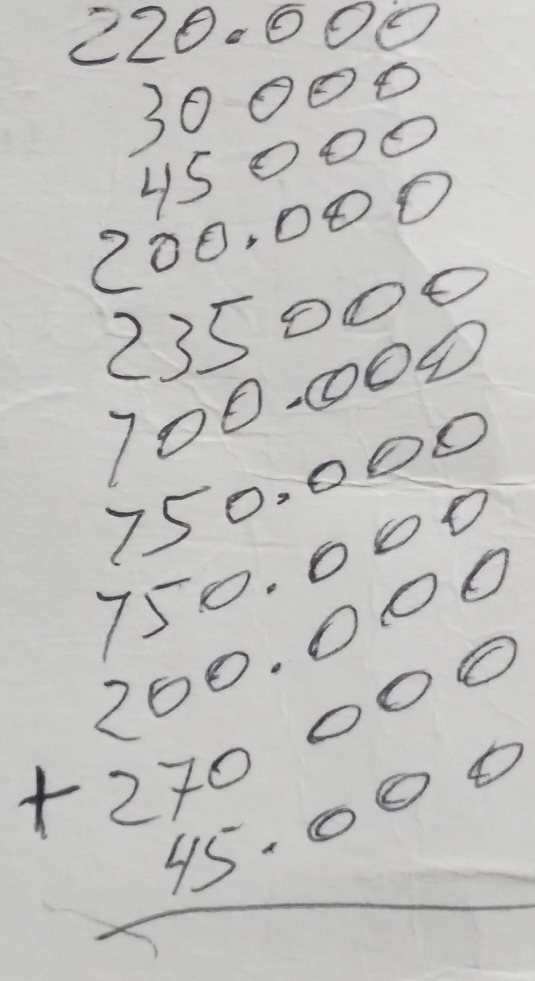 220.000
30 000
45 000
200.000
235 000
700.000
750.000
750.000
200.000
+ 270 000
45.000